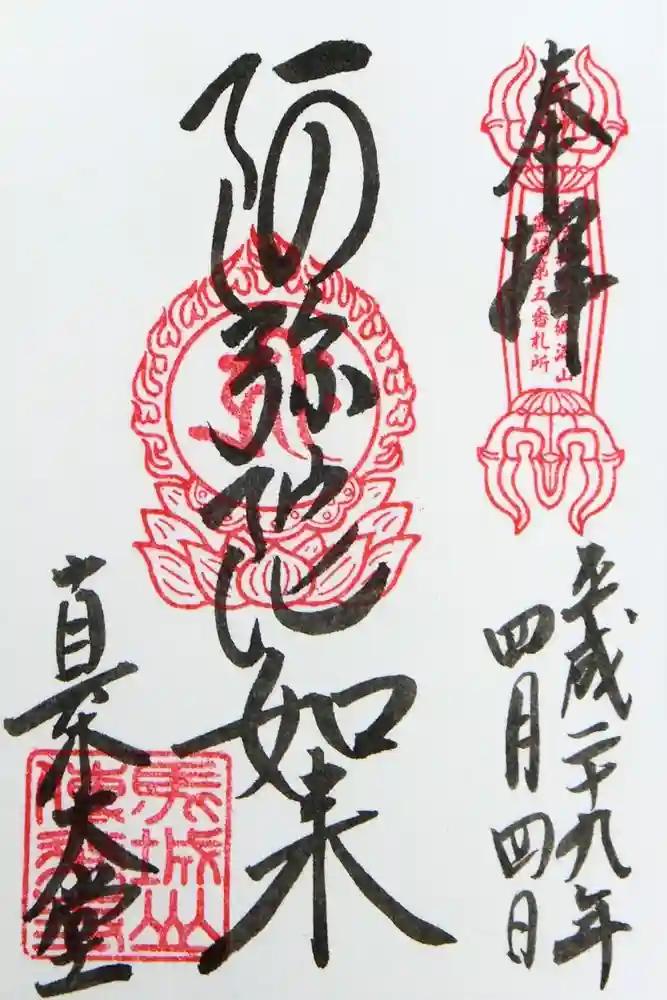 奉拝
霊場第五番札所
平成二十九年
四月四日
阿弥陀如来
真木大堂
馬城山